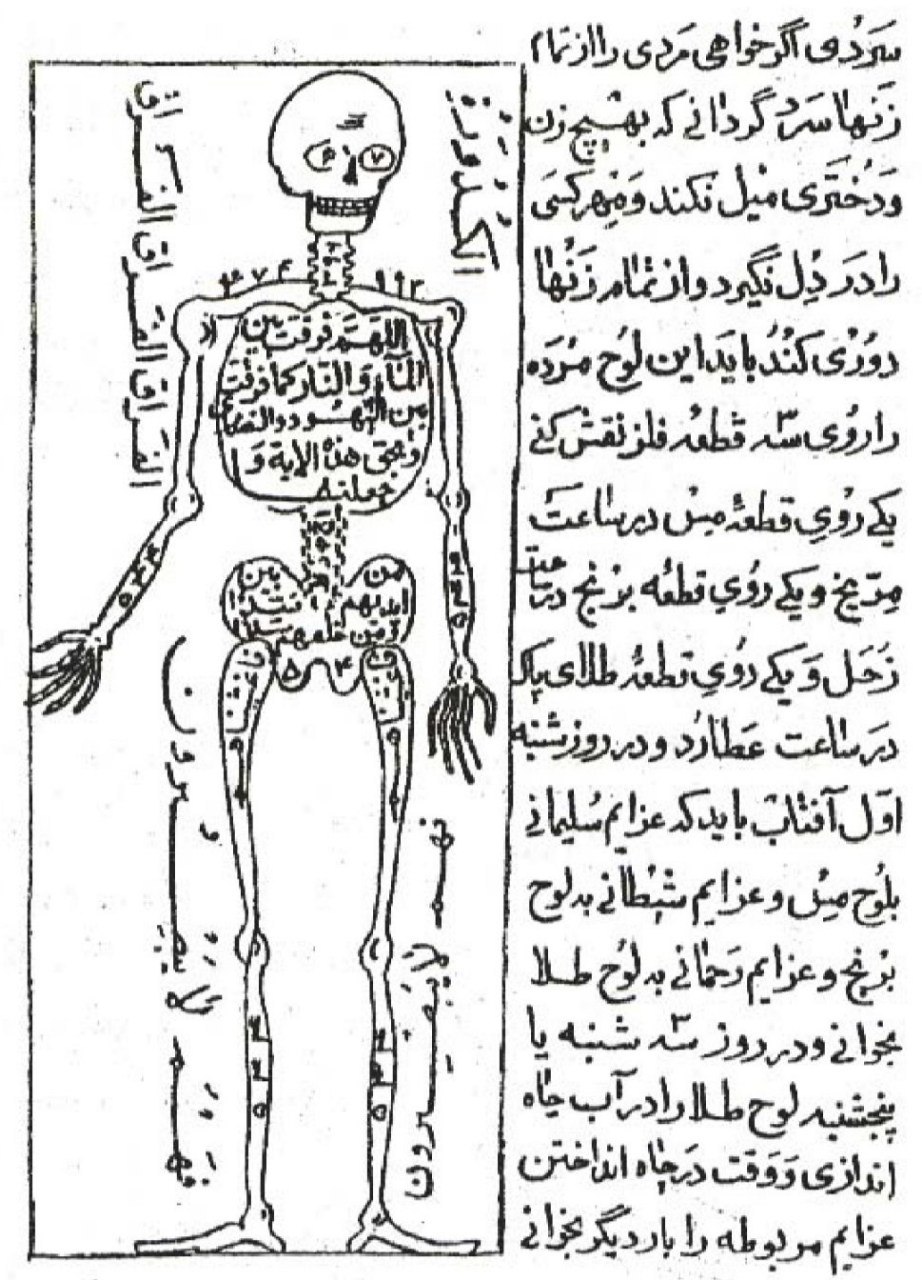 سَردُی اگر خواهی مَردی را از تمام
زَنها سَرد گردانے که بهیچ زن
وَدُختَری مَیل نکند وَمِهر کسَی
را دَر دِل نگیرد و از تمام زَنها
دورُی کنُد بایَد این لوُح مرُده
را روُی سَه قطعه فلز نقش کنے
یکے روُیِ قطعهٔ مِس در ساعت
مِرّیخ و یکے روُیِ قطعه برنج در ساعت
زُحَل وَ یکے روُیِ قطعهٔ طلای پاک
دَر ساعت عَطارُد و در روز شنبه
اوّل آفتاب باید که عزایم سُلیمانے
بلوُح مِس و عزایم شیطانے به لوح
برنج و عزایم رَحمانے به لوُح طلا
بخوانے و در روز سَه شنبه یا
پنجشنبه لوح طلا را در آب چاه
اندازی وَ وَقت دَر چاه انداختن
عزایم مربوطه را بار دیگر بخوانے
الفراق الفراق الفراق
۷
۴ ۷
۱۱۲
اللهمَّ فرقت بین
المآء وَالنّار کما فرقت
بین الیَهُود والنصا
وبحق هذه الایة وَ
جعلنا
من بین
ایدیهم سَدّا
وَمِن خلفهم سَدّا
۵ ۴
فَهُم لایبصرون
فهم لایبصرون